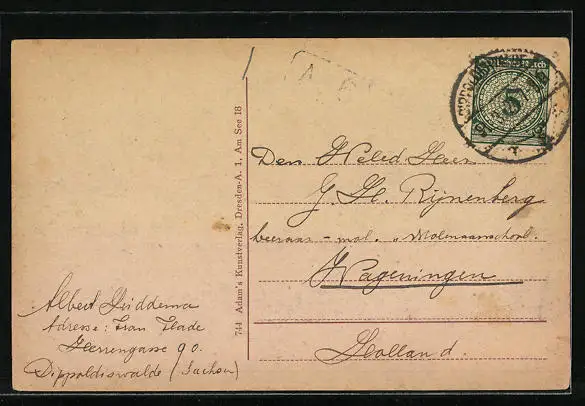 Deutsches Reich
5
Den Weled Heer
G. H. Rijnenberg
leeraar - mol. „Molenaarschool.
Wageningen
Holland.
Albert Duddema
Adresse: Frau Flade
Herrengasse 90.
Dippoldiswalde (Sachsen)
744 Adam's Kunstverlag, Dresden-A. 1, Am See 18